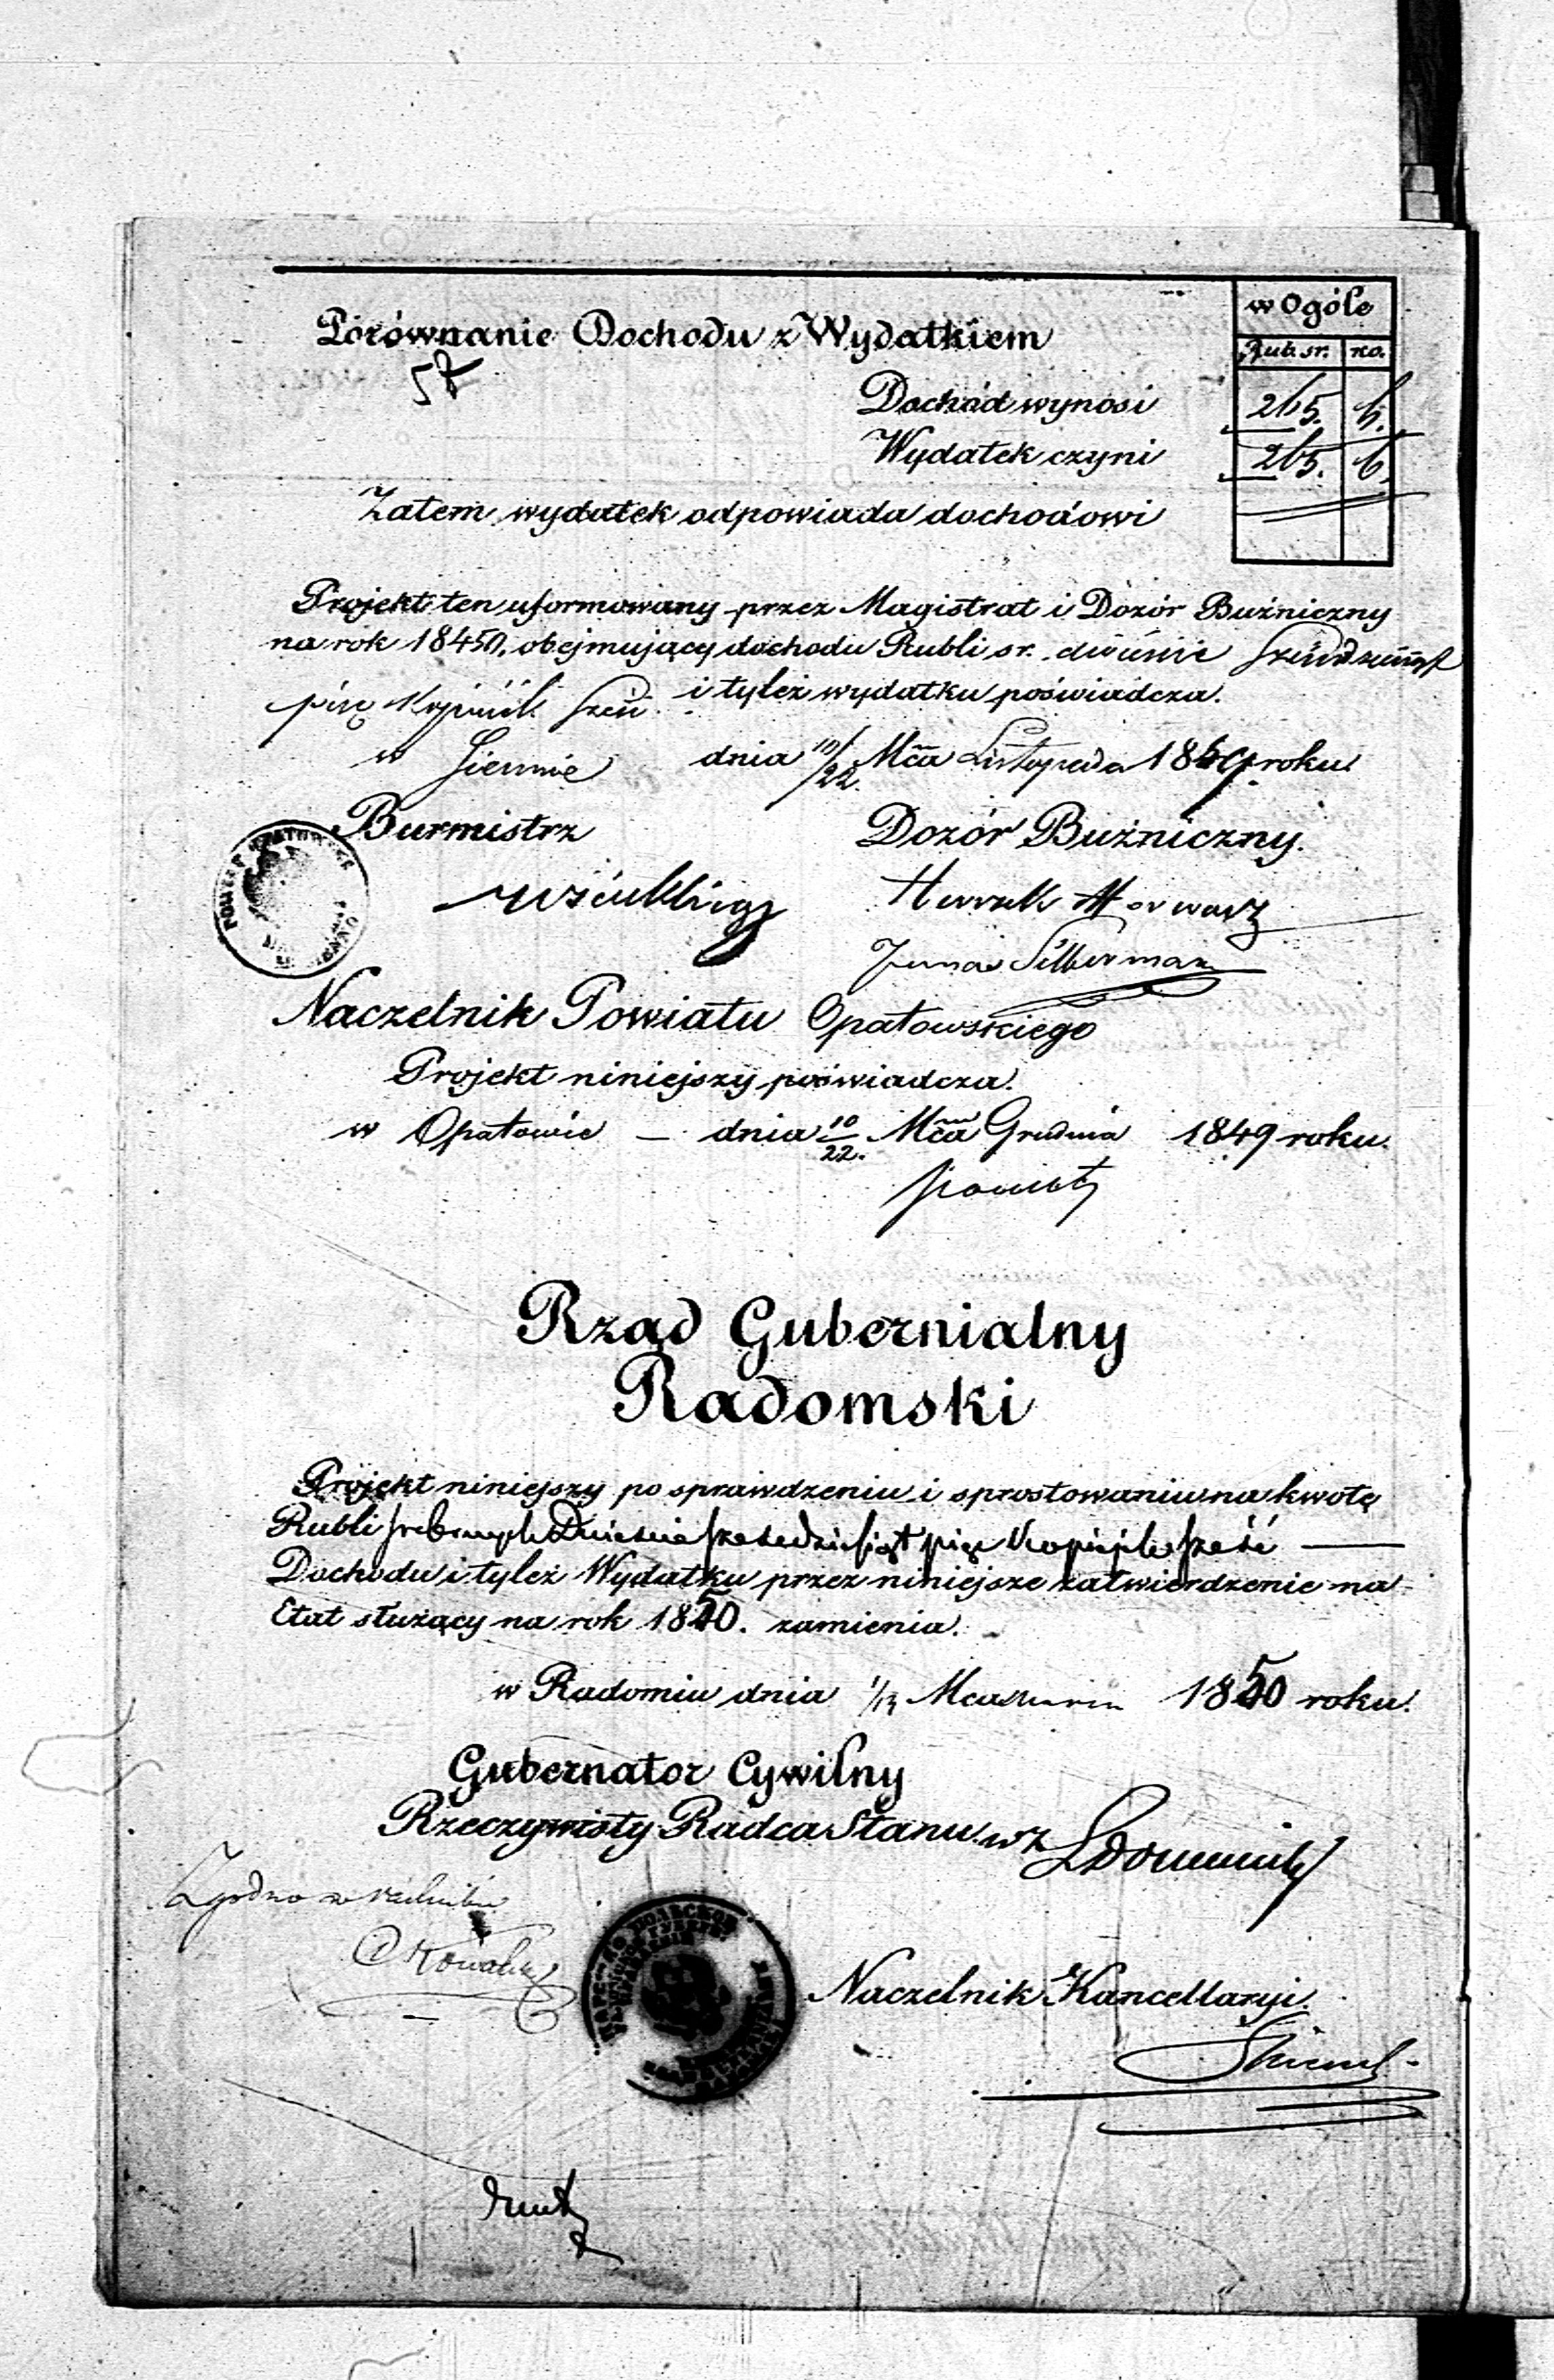 w Ogóle
Porównanie Dochodu z Wydatkiem
Rub. sr. ko.
Dochód wynosi 265. 6.
Wydatek czyni 265. 6.
Zatem wydatek odpowiada dochodowi
Projekt ten uformowany przez Magistrat i Dozór Bużniczny
na rok 1850, obejmujący dochodu Rubli sr. dwieście sześćdziesiąt
pięć kopiiek sześć i tyleż wydatku poświadcza.
w Siennie dnia 10/22 Mca Listopada 1849 roku.
Burmistrz Dozór Bużniczny.
Silberman
Naczelnik Powiatu Opatowskiego
Projekt niniejszy poświadcza.
w Opatowie — dnia 10/22. Mca Grudnia 1849 roku.
Rząd Gubernialny
Radomski
Projekt niniejszy po sprawdzeniu i sprostowaniu na kwotę
Rubli srebrnych Dwieście sześćdziesiąt pięć Kopiejek sześć —
Dochodu i tyleż Wydatku przez niniejsze zatwierdzenie na
Etat służący na rok 1850. zamienia.
w Radomiu dnia 1/13 Mca Marca 1850 roku.
Gubernator Cywilny
Rzeczywisty Radca Stanu. w z
Zgodno
Kowalski
Naczelnik Kancellaryi.